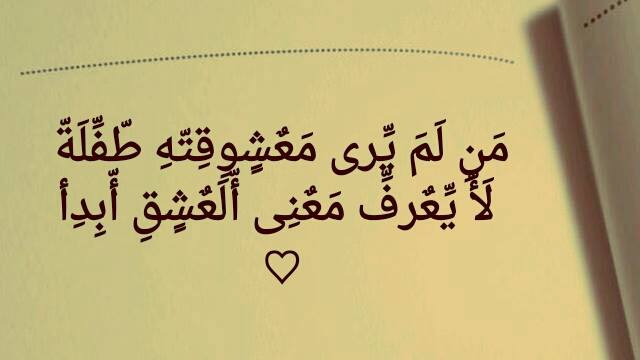 مَن لَمَ يِّرى مَعٌشٍوقِتّهِ طّفِّلَةّ
لَأُ يِّعٌرفِّ مَعٌنِى أِّلَعٌشٍقِ أّبِدِأ
♡